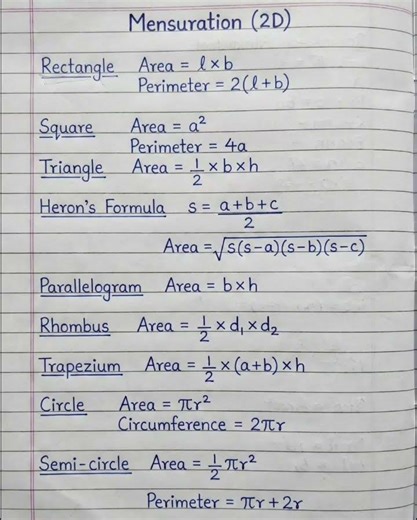 Mensuration (2D)
Rectangle Area = l × b
Perimeter = 2(l + b)
Square Area = a²
Perimeter = 4a
Triangle Area = 1/2 × b × h
Heron's Formula s = (a + b + c)/2
Area = √s(s-a)(s-b)(s-c)
Parallelogram Area = b × h
Rhombus Area = 1/2 × d₁ × d₂
Trapezium Area = 1/2 × (a + b) × h
Circle Area = πr²
Circumference = 2πr
Semi-circle Area = 1/2 πr²
Perimeter = πr + 2r